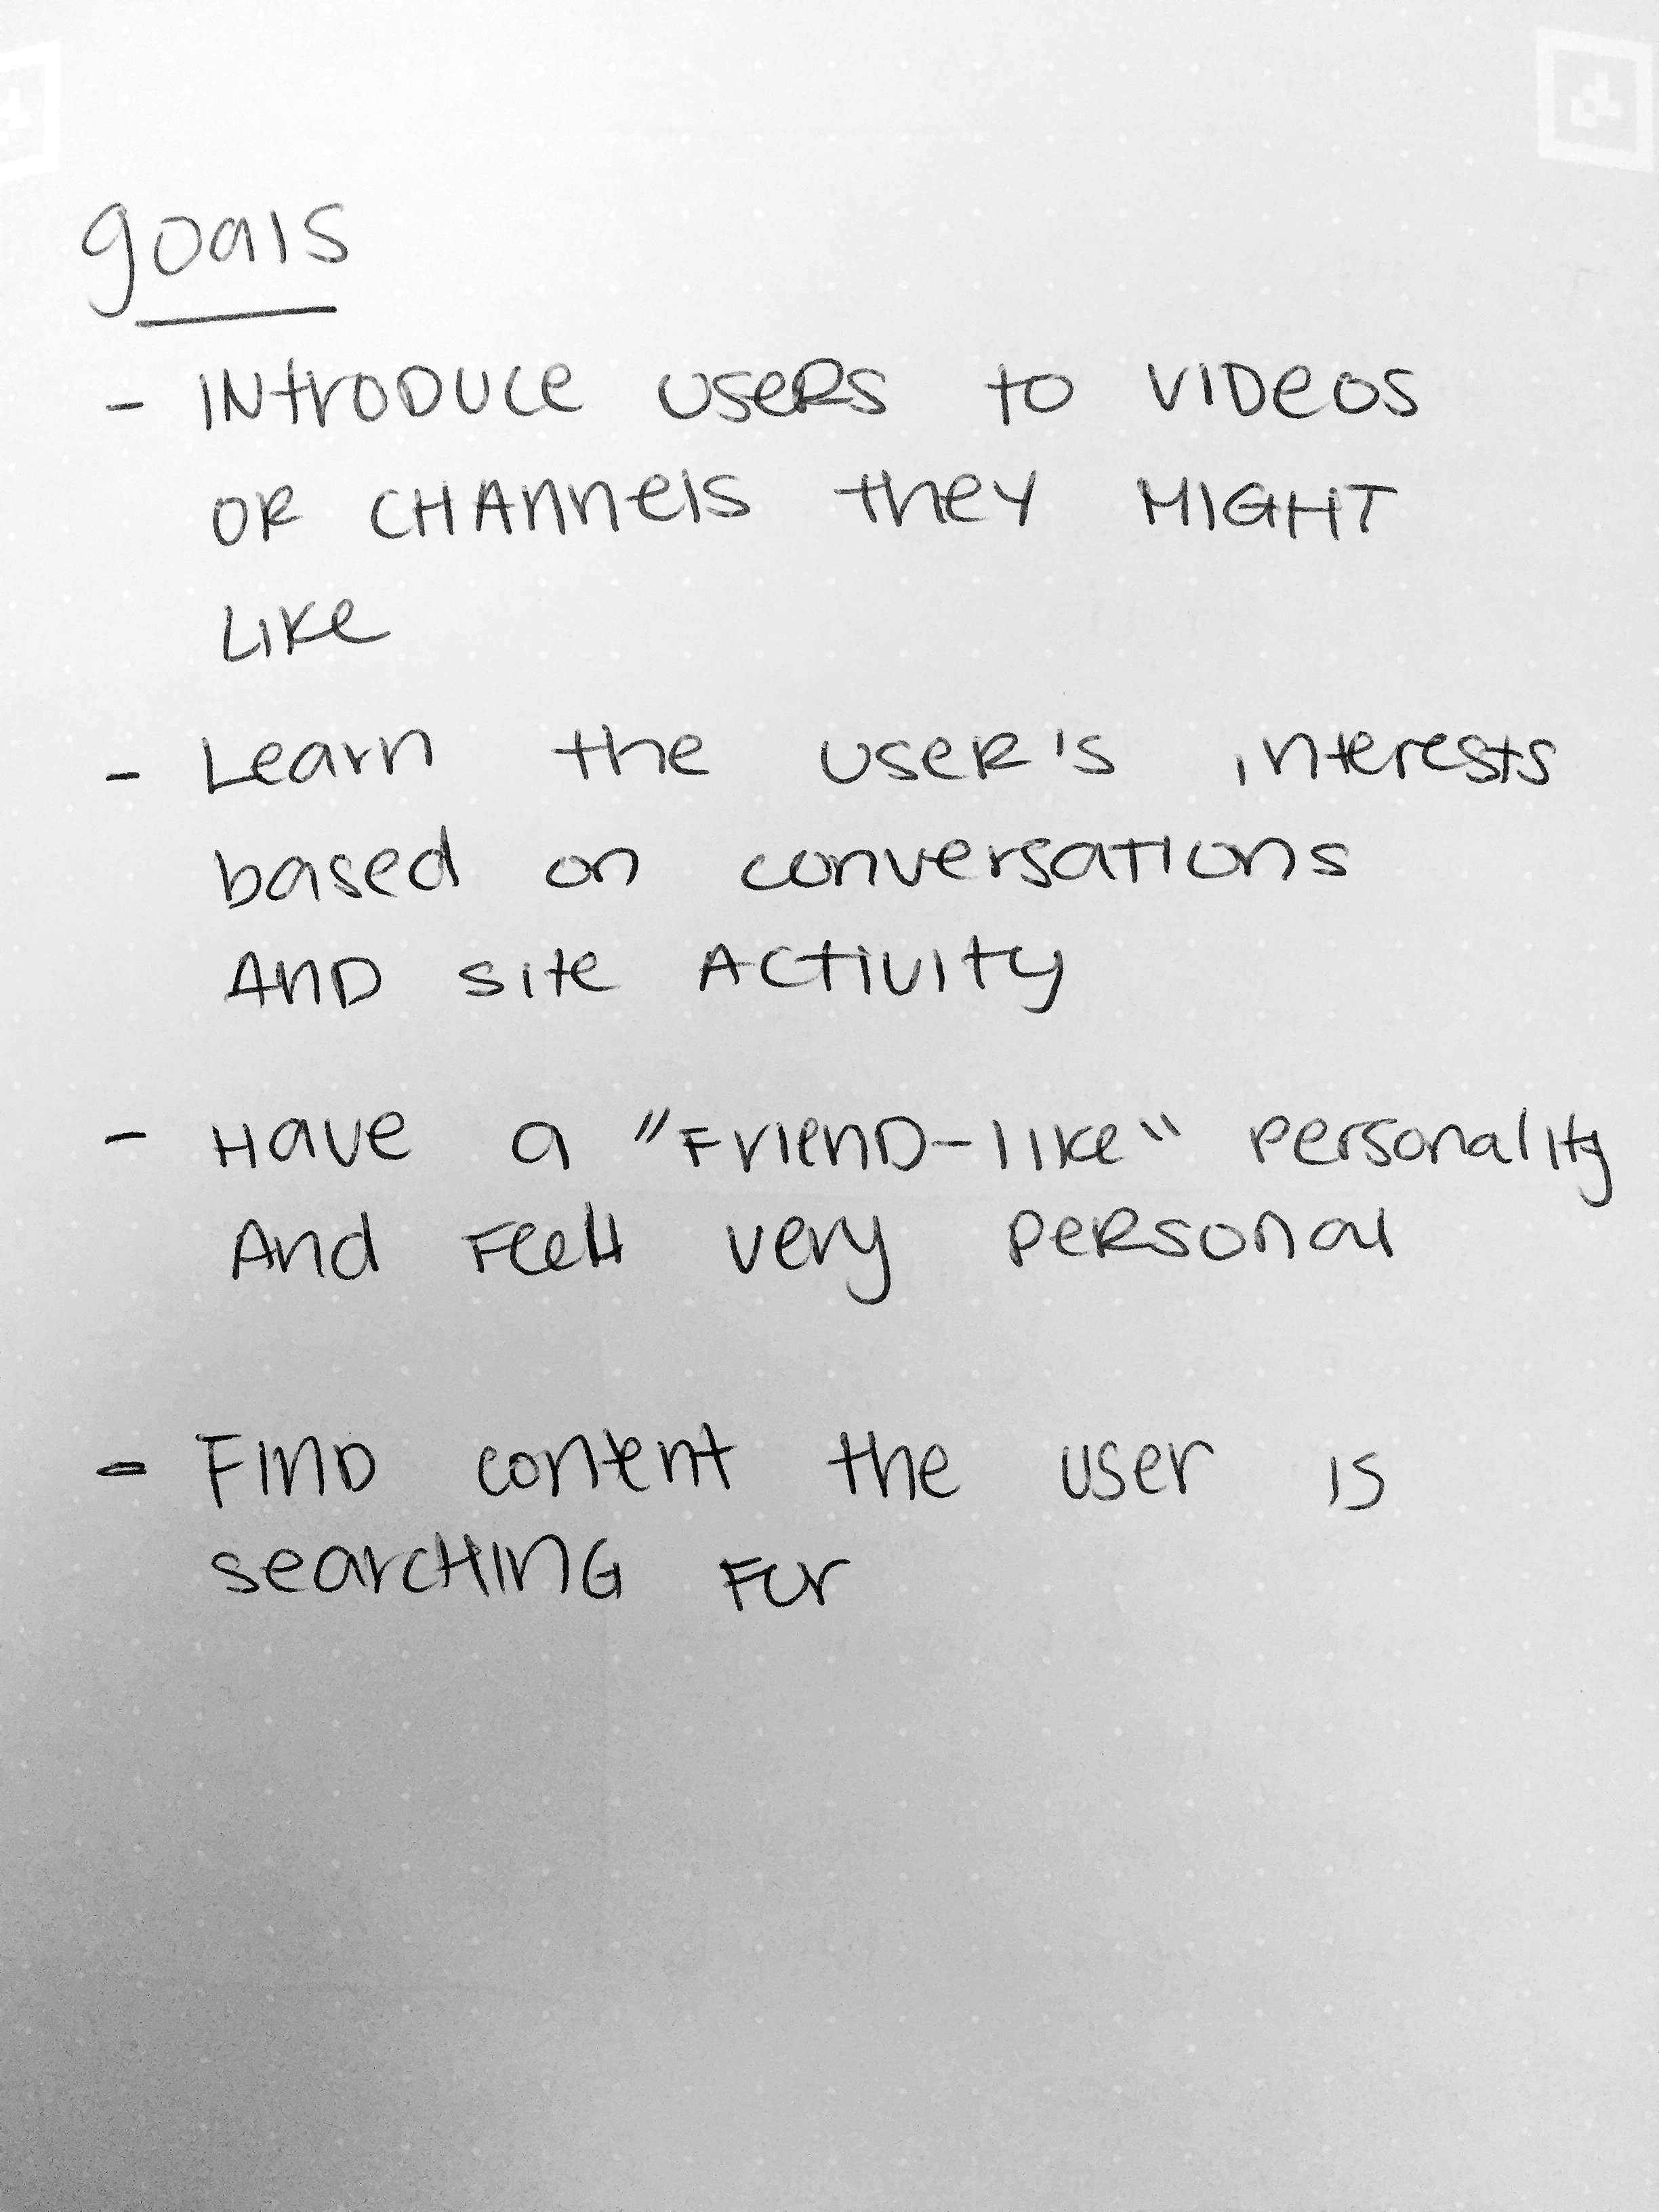 goals
- INtrODUCe USeRS to VIDeOS
OR CHAnnels they MIGHT
LIKe
- Learn the useR's interests
based on conversations
AND site ACtiVity
- Have a "FrienD-like" personality
And Feel very peRsonal
- FinD content the user is
searcHinG For